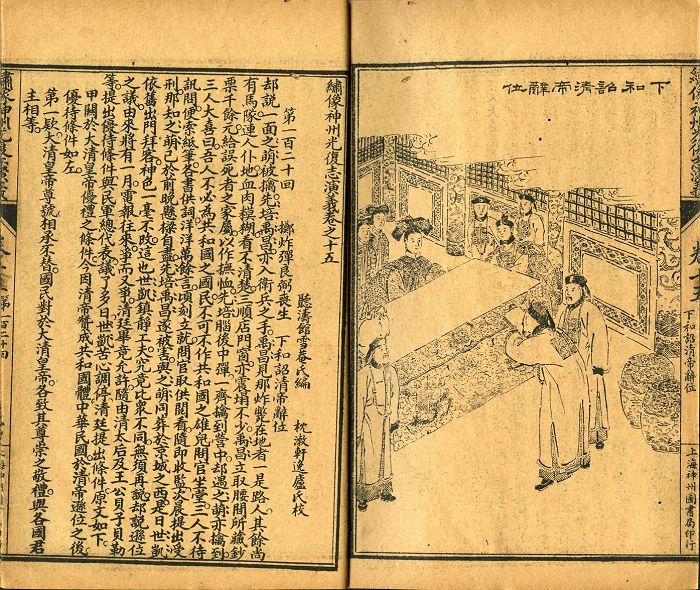 下和詔清帝辭位
下和詔清帝辭位
上海神州圖書局印行
繡像神州光復志演義卷之十五
聽濤館雪菴氏編 枕漱軒逸廬氏校
第一百二十回 擲炸彈良弼喪生 下和詔清帝辭位
却說一面之萌被擒。先培禹昌亦入衛兵之手。禹昌見那炸斃在地者。一是路人。其餘尚
有馬隊連人仆地。血肉模糊看不清楚。三順店門窗亦震塌不少。禹昌立取腰間所藏鈔
票千餘元給誤死者之家屬。以作撫恤。先培腦後中彈。一齊擒到營中。却遇之萌亦擒到
三人大喜曰。吾人不必為共和國之國民。不可不作共和之雄鬼。問官坐堂。三人不待
訊問。便索紙筆各書供詞。洋洋萬餘言。頃刻立就。問官取供閱看。隨即收監。次晨提出受
刑。那知之萌已於前晚懸樑自盡。先培禹昌遂被害。與之萌同葬於京城之西。是日世凱
依舊出門拜客。神色一毫不改。這也世凱鎮靜工夫。究竟比衆不同。無須再說。却說遜位
之議。由來將有一月。電報往來。爭而又爭。清廷畢竟允許。隨由清太后及王公貝子貝勒
等。提出優待條件。與民軍總代表議了多日。世凱苦心調停。清廷提出條件原文如下。
甲關於大清皇帝優禮之條件。今因清帝贊成共和國體。中華民國於清帝遜位之後
優待條件如左。
第一款大清皇帝尊號相承不替。國民對於大清皇帝。各致其尊崇之敬禮。與各國君
主相等。